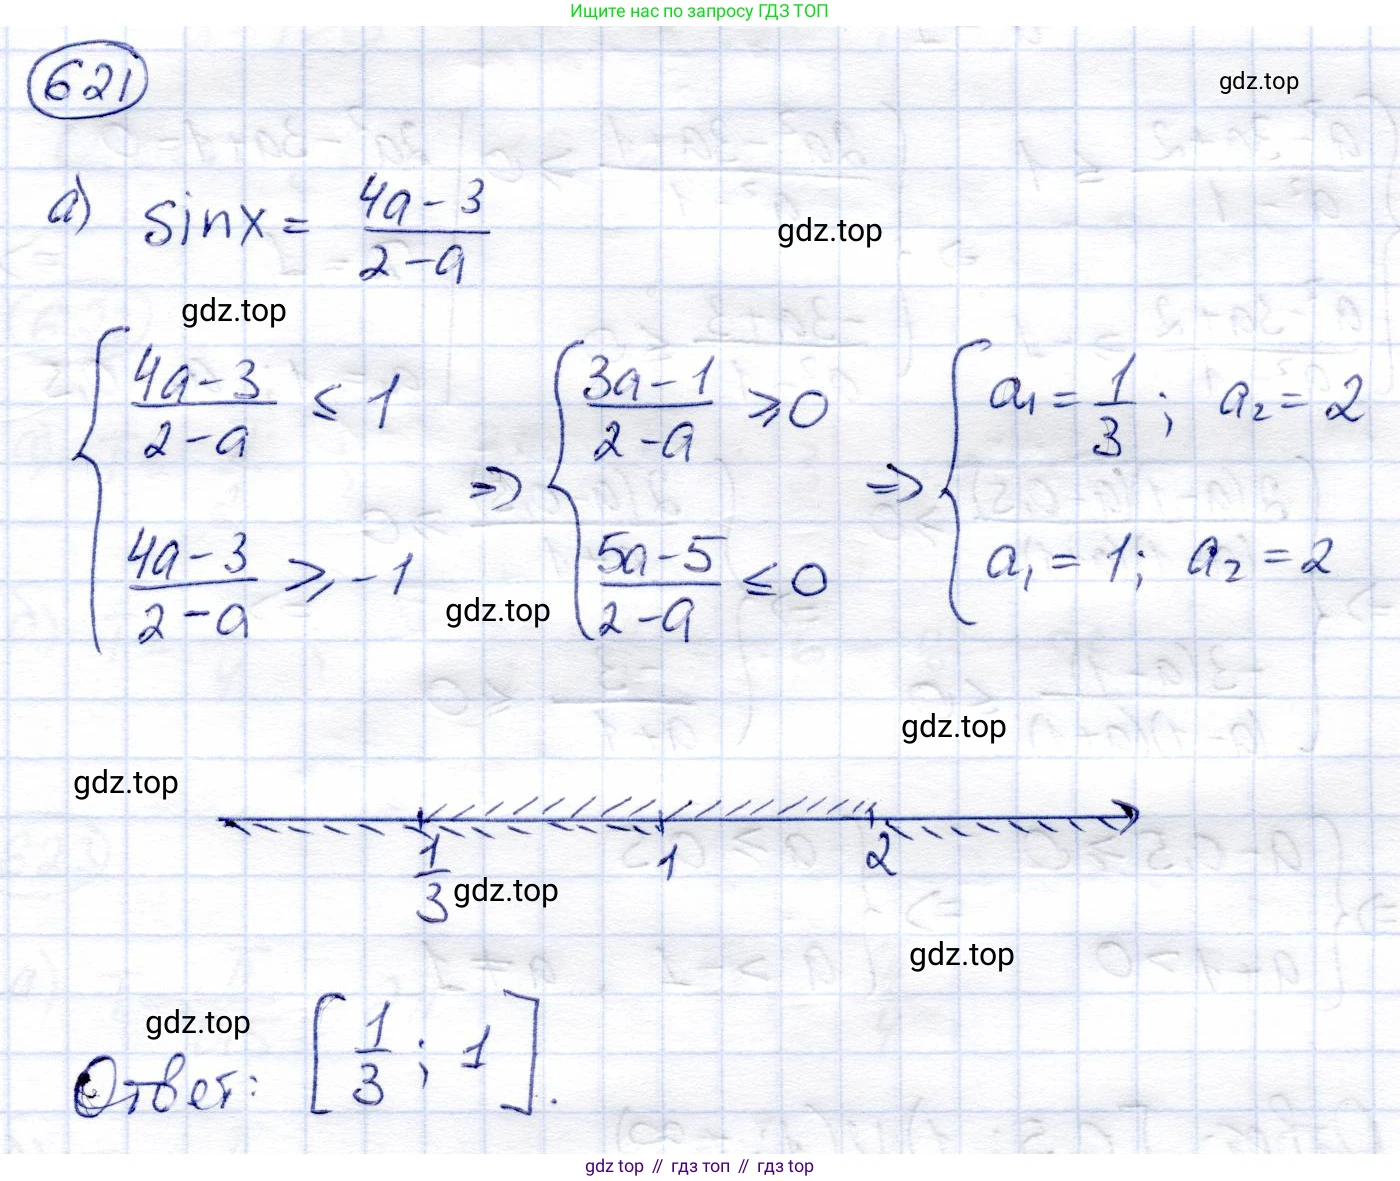 Ищите нас по запросу ГДЗ ТОП
621
gdz.top
а) sinx = (4a-3)/(2-a)
gdz.top
gdz.top
{ (4a-3)/(2-a) ≤ 1 ⇒ { (3a-1)/(2-a) ≥ 0 ⇒ { a₁ = 1/3 ; a₂ = 2
(4a-3)/(2-a) ≥ -1 (5a-5)/(2-a) ≤ 0 a₁ = 1; a₂ = 2
gdz.top
gdz.top
gdz.top
1/3 1 2
gdz.top
gdz.top
gdz.top
Ответ: [1/3 ; 1].
gdz top // гдз топ // гдз top